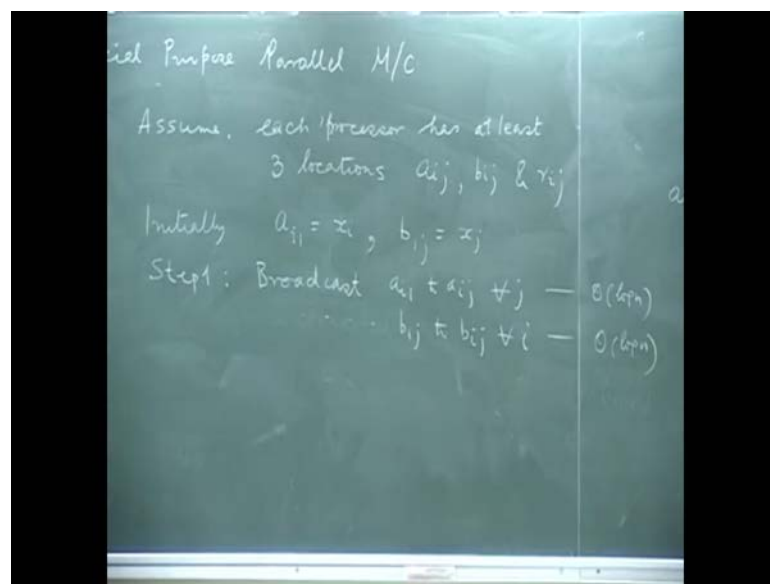 cial Purpose Parallel M/C
Assume, each processor has at least
3 locations aij, bij & rij
Initially ai1 = xi, b1j = xj
Step1: Broadcast ai1 to aij ∀j — O(logn)
b1j to bij ∀i — O(logn)
a